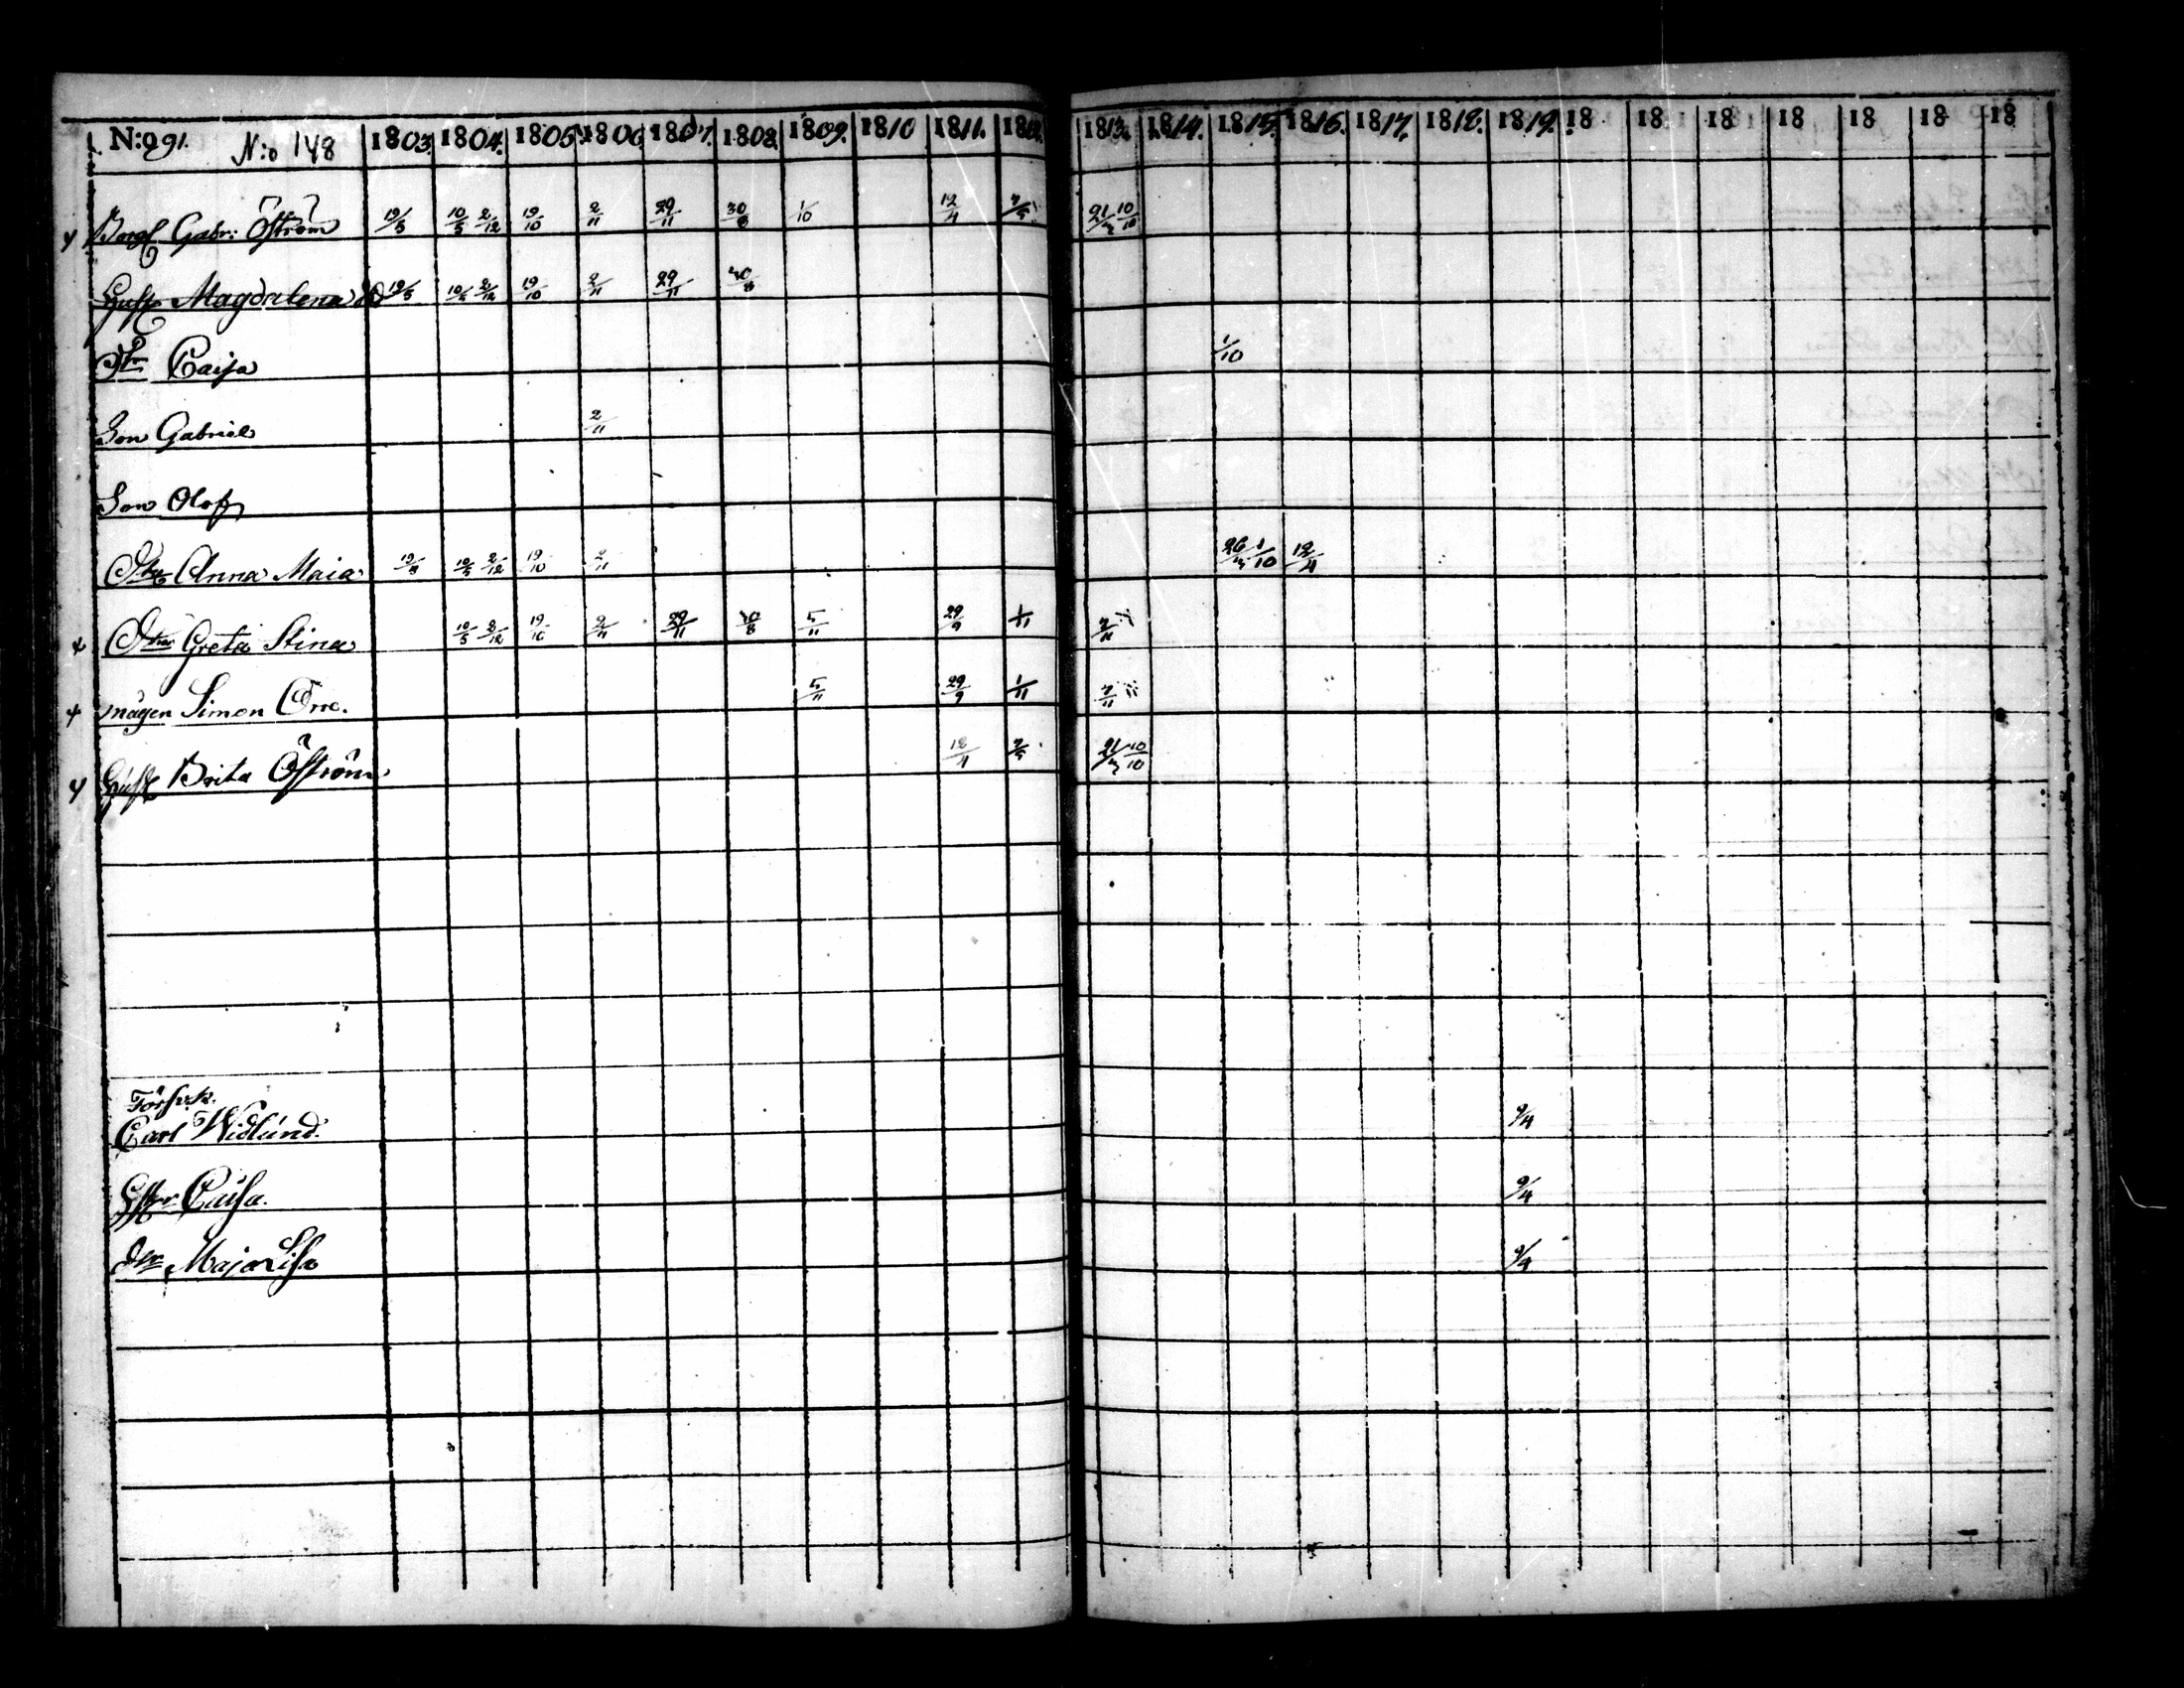 N:o 91. N:o 148 1803. 1804. 1805. 1806 1807. 1808. 1809. 1810 1811. 1812. 1813. 1814. 1815. 1816. 1817. 1818. 1819. 18 18 18 18 18 18 18
Gabr: Öström 19/5 10/5 2/12 19/10 2/11 29/11 30/8 1/10 12/4 21/3 10/10
Hust Magdalena 19/5 10/5 2/12 19/10 2/11 29/11 30/8
Dr Caisa 1/10
Son Gabriel 2/11
Son Olof
Dtr Anna Maia 19/5 10/5 2/12 19/10 2/11 26/3 1/10 12/4
Dtr Greta Stina 10/5 2/12 19/10 2/11 29/11 30/8 5/11 29/9 1/11 7/11
mågen Simon Orre. 5/11 29/9 1/11 7/11
Hust Brita Öström 12/4 21/3 10/10
Försv.k.
Carl Widlund. 9/4
Caisa. 9/4
dtr Maja Lisa 9/4